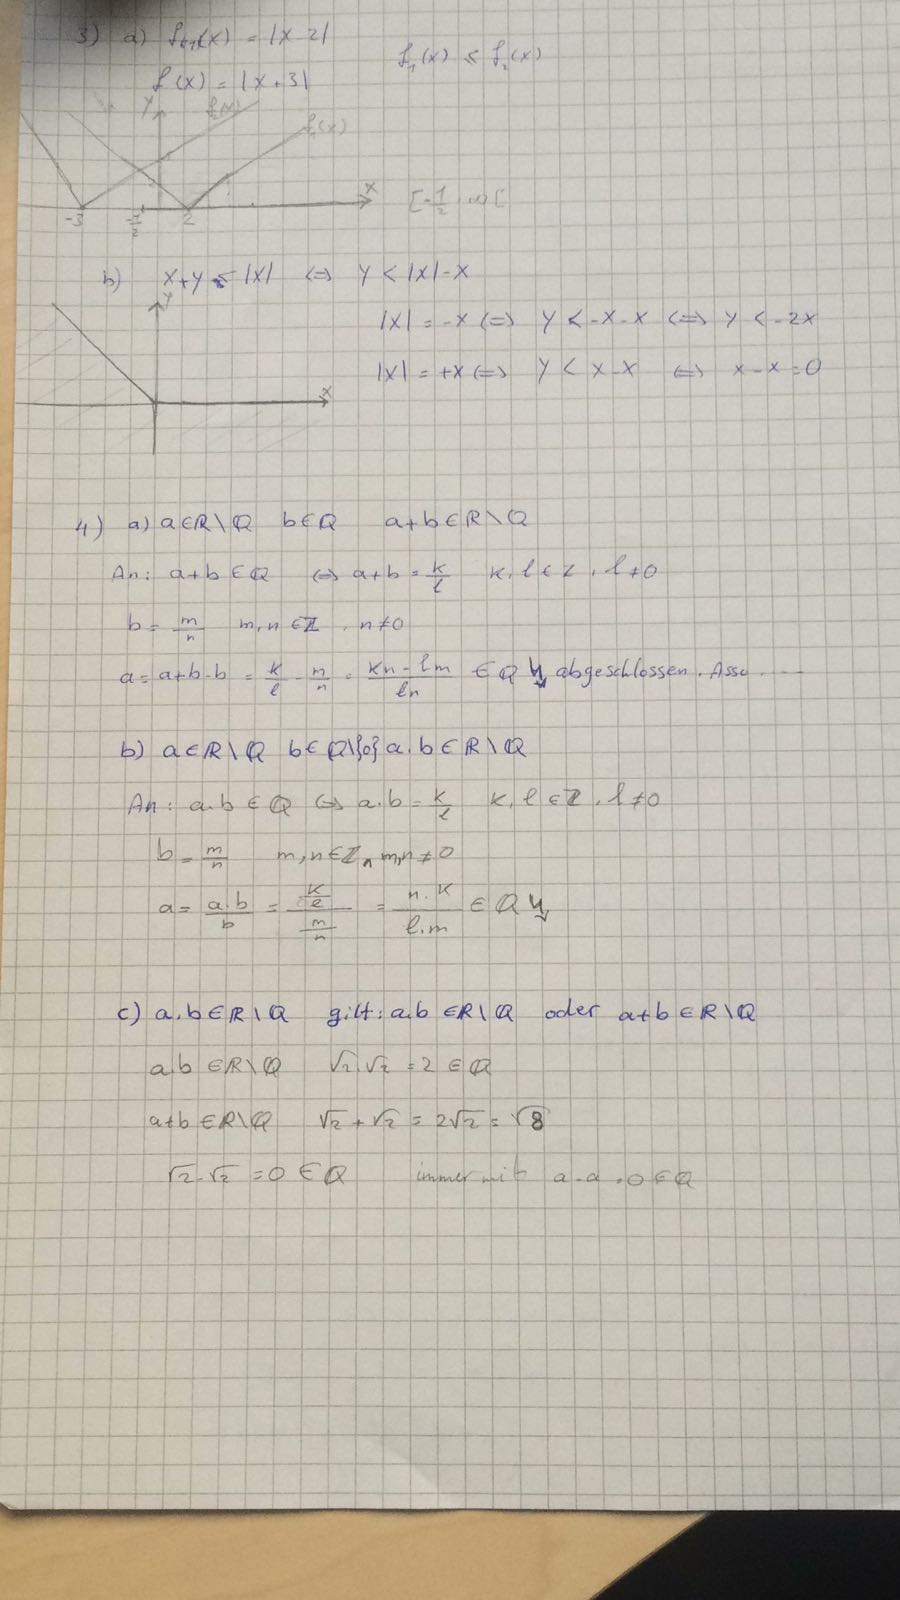 3) a) f₁(x) = |x-2|
f₁(x) ≤ f₂(x)
f(x) = |x+3|
y f₂(x)
f₁(x)
x
-3 -1/2 2 [-1/2, ∞[
b) x+y ≤ |x| ⇔ y < |x|-x
y
|x| = -x ⇔ y < -x-x ⇔ y < -2x
|x| = +x ⇔ y < x-x ⇔ x-x=0
x
4) a) a∈ℝ\ℚ b∈ℚ a+b∈ℝ\ℚ
An: a+b∈ℚ ⇔ a+b = k/l k, l ∈ ℤ, l≠0
b = m/n m, n ∈ℤ, n≠0
a = a+b-b = k/l - m/n = (kn-lm)/(ln) ∈ℚ ↯ abgeschlossen. Asso.
b) a∈ℝ\ℚ b∈ℚ\{0} a·b∈ℝ\ℚ
An: a·b∈ℚ ⇔ a·b = k/l k, l ∈ℤ, l≠0
b = m/n m, n∈ℤ, m,n≠0
a = (a·b)/b = (k/l)/(m/n) = (n·k)/(l·m) ∈ ℚ ↯
c) a,b∈ℝ\ℚ gilt: a·b ∈ℝ\ℚ oder a+b∈ℝ\ℚ
a·b ∈ℝ\ℚ √2·√2 = 2 ∈ℚ
a+b ∈ℝ\ℚ √2 + √2 = 2√2 = √8
√2-√2 = 0 ∈ℚ immer mit a-a = 0∈ℚ